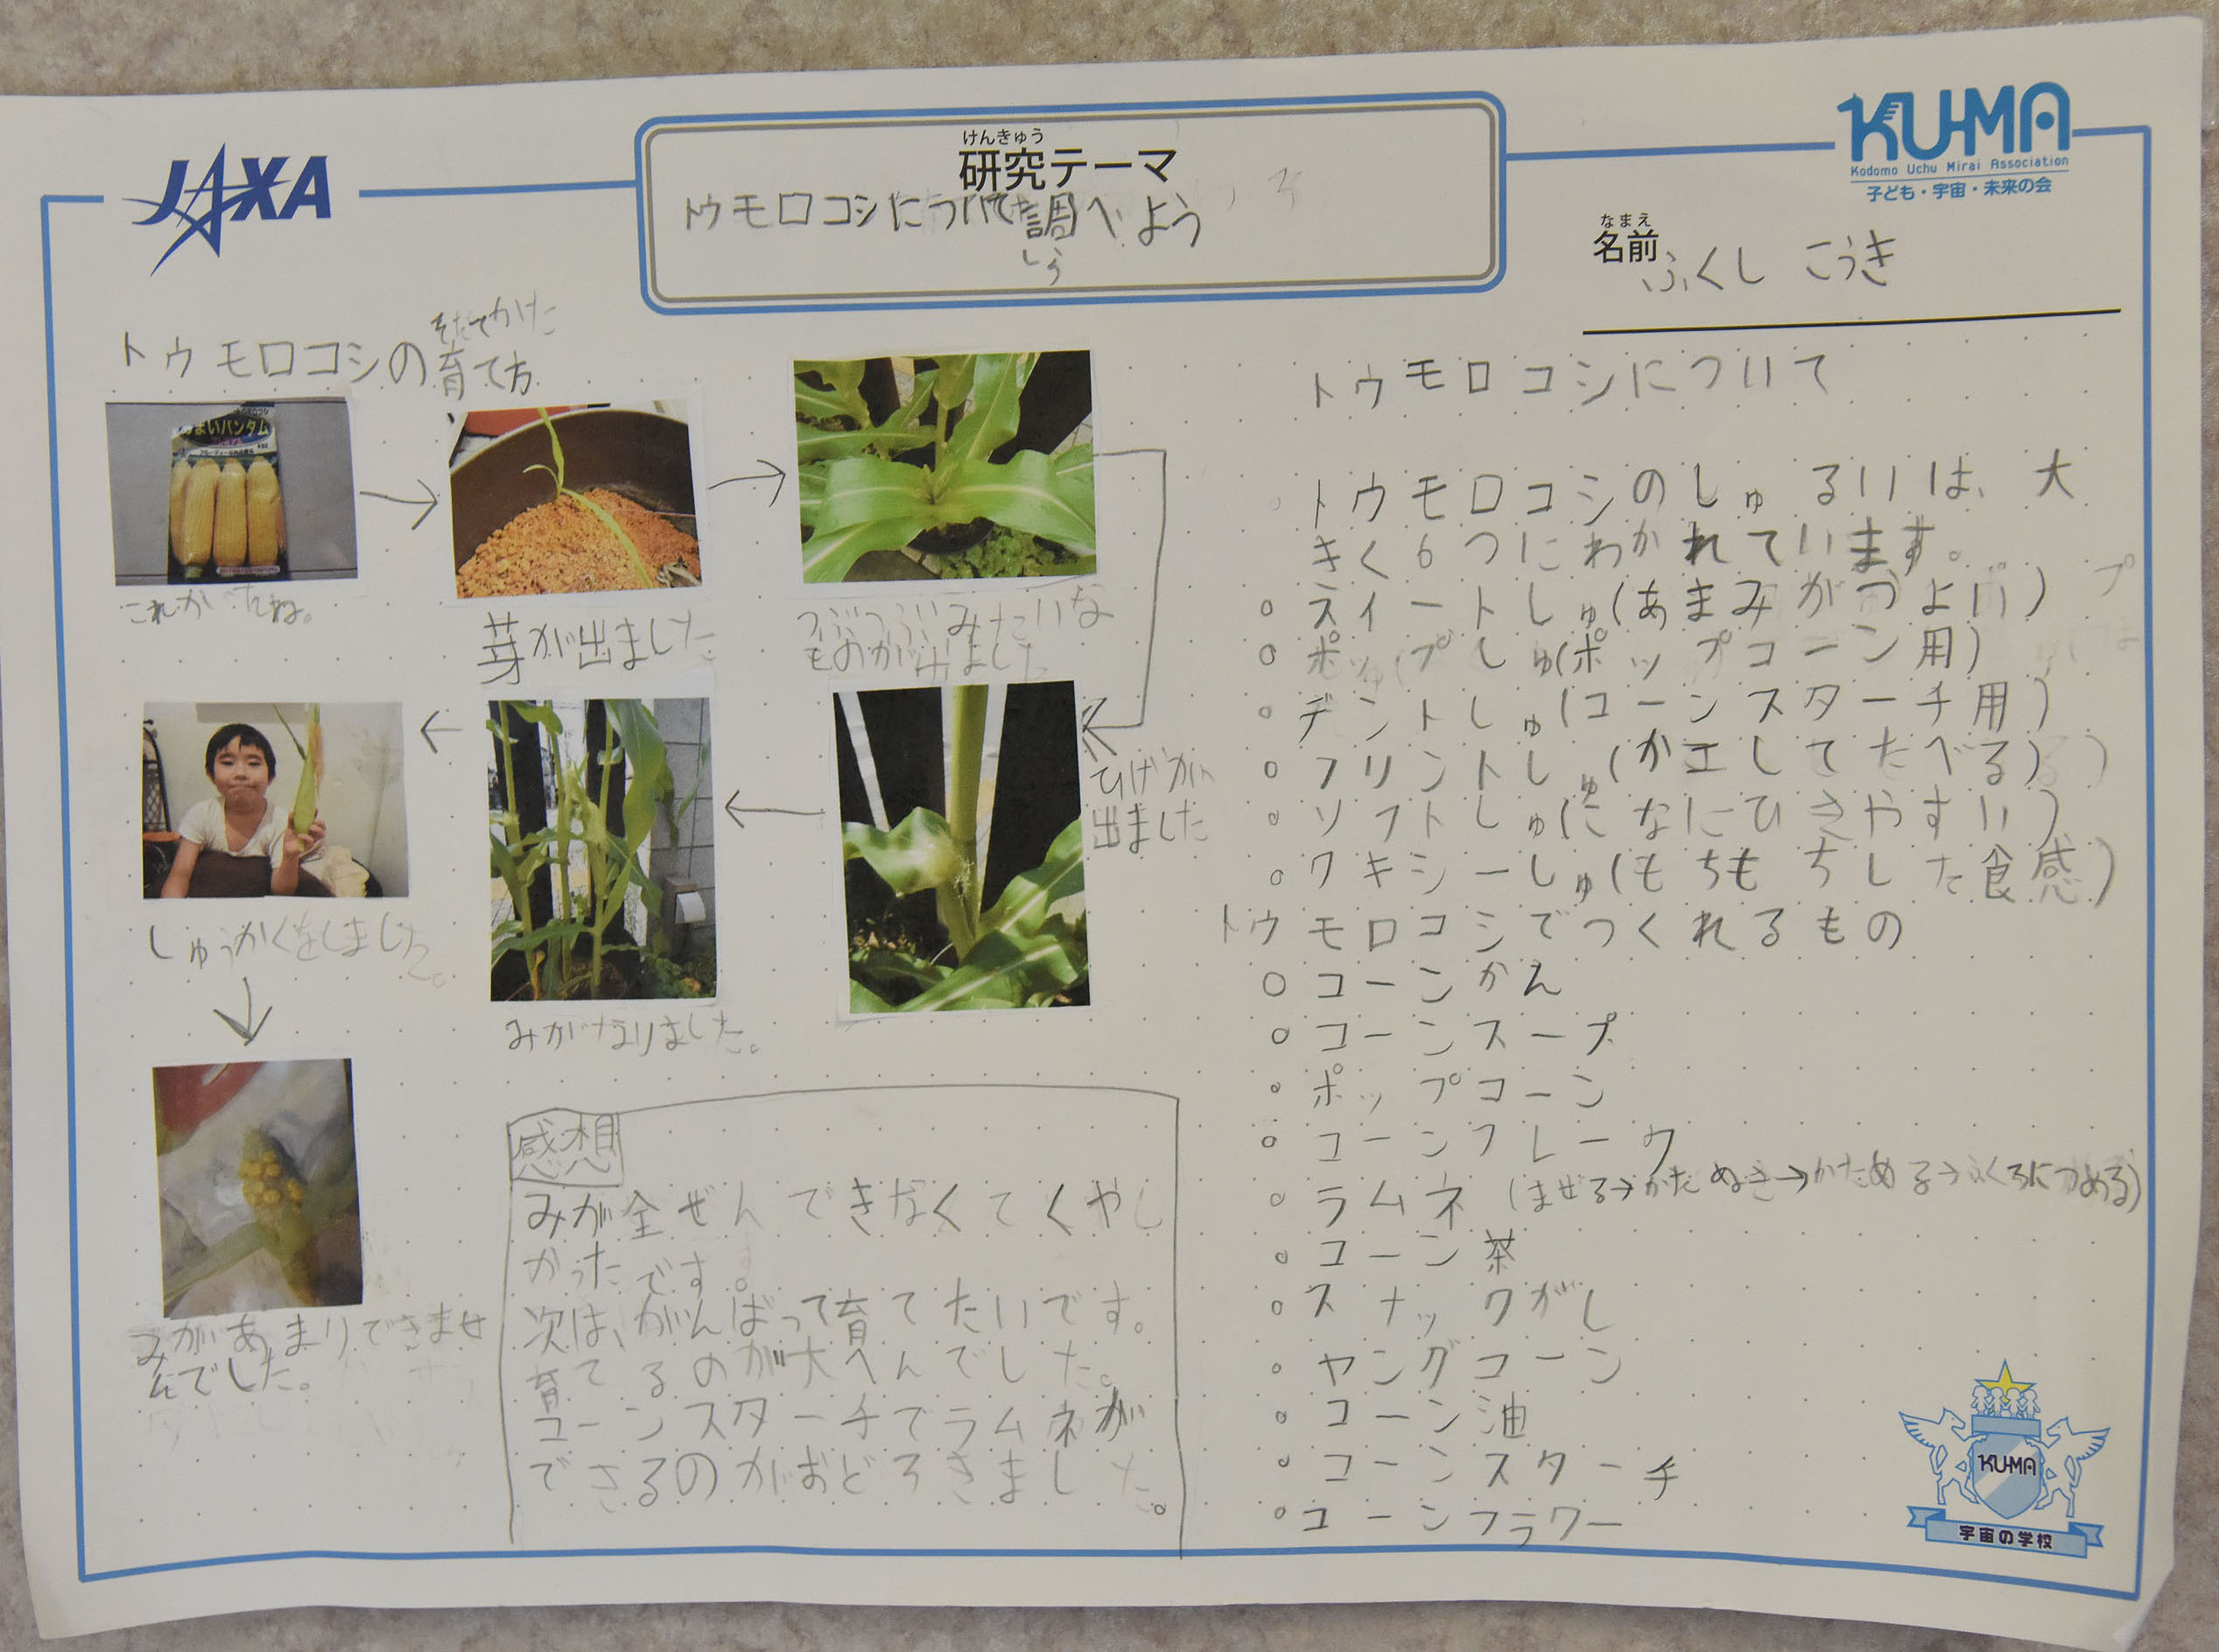 JAXA
けんきゅう
研究テーマ
トウモロコシについて調べよう
しら
KU-MA
Kodomo Uchu Mirai Association
子ども・宇宙・未来の会
なまえ
名前
ふくし こうき
トウモロコシの育て方
うまいバンタム
これがたね。
芽が出ました
つぶつぶみたいな
ものが出ました
ひげが
出ました
みがなりました。
しゅうかくをしました。
みがあまりできませ
んでした。
感想
みが全ぜんできなくてくやし
かったです。
次は、がんばって育てたいです。
育てるのが大へんでした。
コーンスターチでラムネが
できるのがおどろきました。
トウモロコシについて
トウモロコシのしゅるいは、大
きく6つにわかれています。
○スイートしゅ(あまみがつよい)
○ポップしゅ(ポップコーン用)
○デントしゅ(コーンスターチ用)
○フリントしゅ(か工してたべる)
○ソフトしゅ(こなにひきやすい)
○ワキシーしゅ(もちもちした食感)
トウモロコシでつくれるもの
○コーンかん
○コーンスープ
○ポップコーン
○コーンフレーク
○ラムネ(まぜる→かたぬき→かためる→ふくろにつめる)
○コーン茶
○スナックがし
○ヤングコーン
○コーン油
○コーンスターチ
○コーンフラワー
KU-MA
宇宙の学校